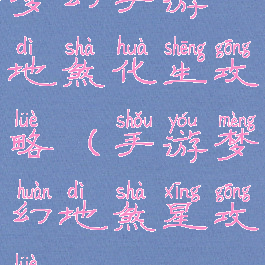 dì shà huà shēng gōng
地煞化生攻
lüè shǒu yóu mèng
略（手游梦
huàn dì shà xīng gōng
幻地煞星攻
lüè